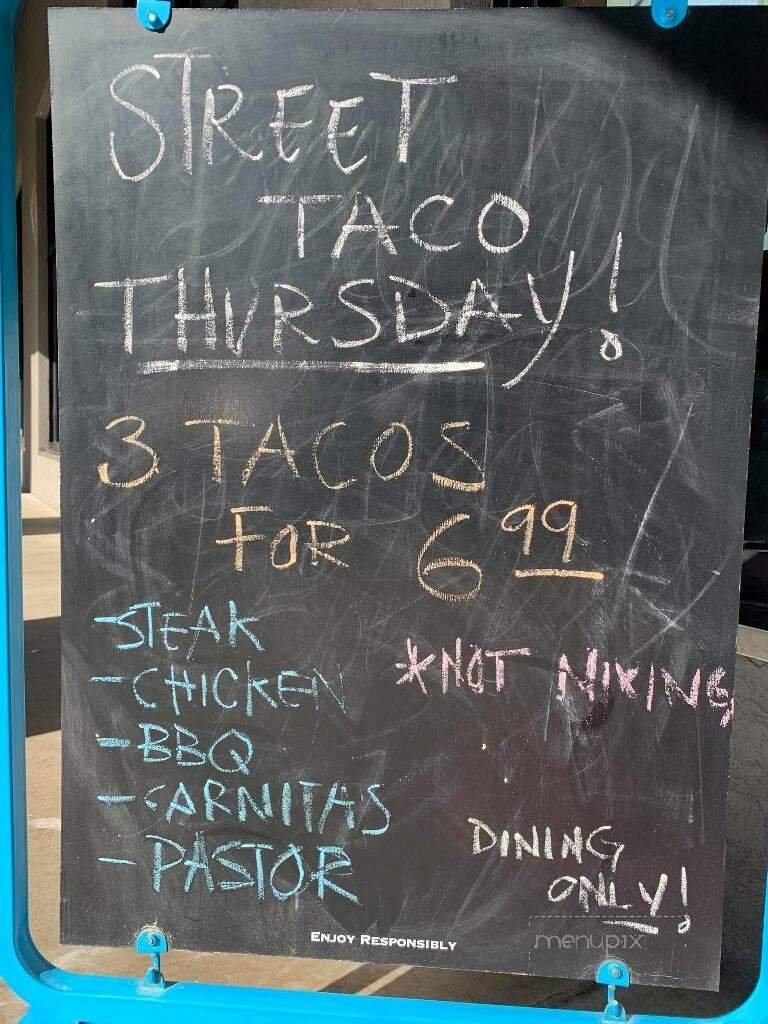 STREET
TACO
THURSDAY!
3 TACOS
FOR 6 99
-STEAK
-CHICKEN
-BBQ
-CARNITAS
-PASTOR
*NOT MIXING
DINING
ONLY!
ENJOY RESPONSIBLY
menupix